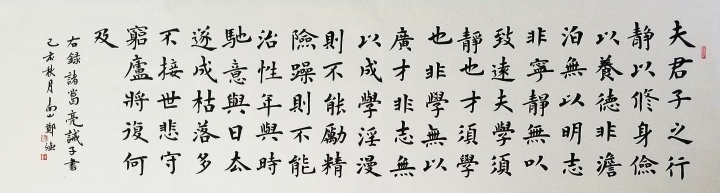 夫君子之行
静以修身儉
以養德非澹
泊無以明志
非寧靜無以
致遠夫學須
静也才須學
也非學無以
廣才非志無
以成學淫漫
則不能勵精
險躁則不能
治性年與時
馳意與日去
遂成枯落多
不接世悲守
窮廬將復何
及
右録諸葛亮誡子書
己亥秋月南山鄭